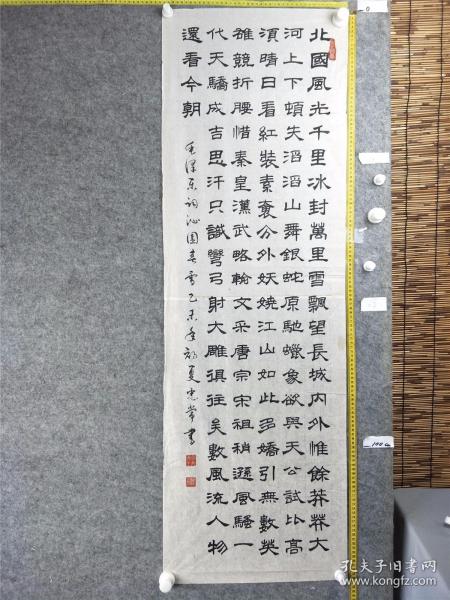 北國風光千里冰封萬里雪飄望長城内外惟餘莽莽大
河上下頓失滔滔山舞銀蛇原馳蠟象欲與天公試比高
須晴日看紅裝素裹分外妖嬈江山如此多嬌引無數英
雄競折腰惜秦皇漢武略輸文采唐宗宋祖稍遜風騷一
代天驕成吉思汗只識彎弓射大雕俱往矣數風流人物
還看今朝
毛澤東詞沁園春雪乙未年初夏忠常書
孔夫子旧书网